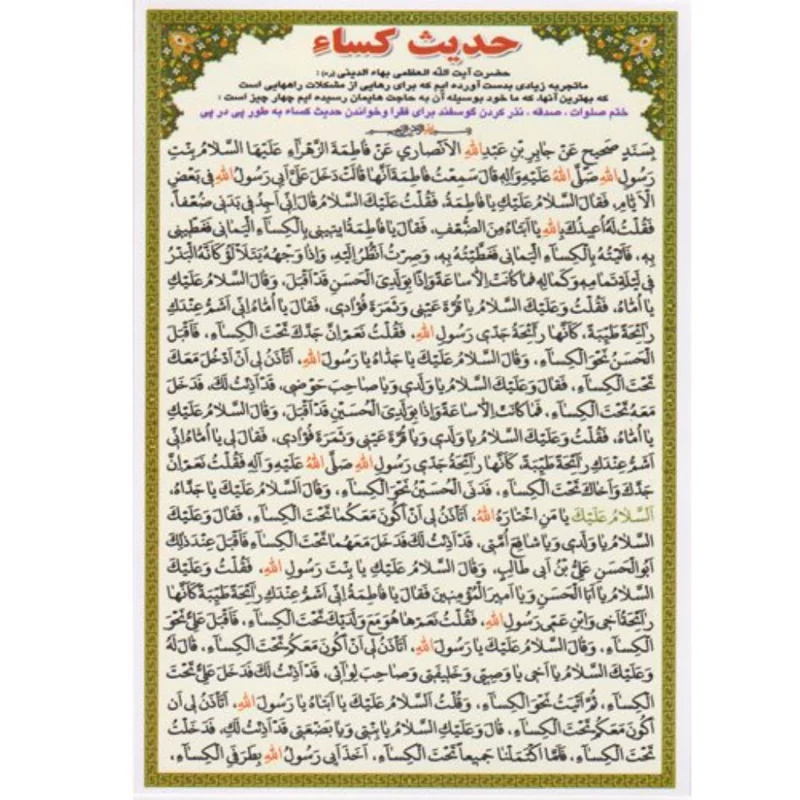 حدیث کساء
حضرت آیت الله العظمی بهاء الدینی (ره) :
ماتجربه زیادی بدست آورده ایم که برای رهایی از مشکلات راههایی است
که بهترین آنها، که ما خود بوسیله آن به حاجت هایمان رسیده ایم چهار چیز است :
ختم صلوات ، صدقه ، نذر کردن گوسفند برای فقرا وخواندن حدیث کساء به طور پی در پی
بِسَنَدٍ صَحیحٍ عَنْ جابِرِ بْنِ عَبْدِ اللهِ الْاَنْصاري عَنْ فاطِمَةَ الزَّهْراءِ عَلَيْهَا السَّلامُ بِنْتِ
رَسُولِ اللهِ صَلَّى اللهُ عَلَيْهِ وَالِهِ قالَ سَمِعْتُ فاطِمَةَ اَنَّها قالَتْ دَخَلَ عَلَيَّ اَبي رَسُولُ اللهِ في بَعْضِ
الْاَيّامِ، فَقالَ السَّلامُ عَلَيْكِ يا فاطِمَةُ، فَقُلْتُ عَلَيْكَ السَّلامُ قالَ اِنّي اَجِدُ في بَدَني ضُعْفاً،
فَقُلْتُ لَهُ اُعيذُكَ بِاللهِ يا اَبَتاهُ مِنَ الضُّعْفِ، فَقالَ يا فاطِمَةُ ايتيني بِالْكِساءِ الْيَماني فَغَطّيني
بِهِ، فَاَتَيْتُهُ بِالْكِساءِ الْيَماني فَغَطَّيْتُهُ بِهِ، وَصِرْتُ اَنْظُرُ اِلَيْهِ، وَاِذا وَجْهُهُ يَتَلَأْلَؤُ كَاَنَّهُ الْبَدْرُ
في لَيْلَةِ تَمامِهِ وَكَمالِهِ فَما كانَتْ اِلّا ساعَةً وَاِذا بِوَلَدِيَ الْحَسَنِ قَدْ اَقْبَلَ، وَقالَ السَّلامُ عَلَيْكِ
يا اُمّاهُ، فَقُلْتُ وَعَلَيْكَ السَّلامُ يا قُرَّةَ عَيْني وَثَمَرَةَ فُؤادي، فَقالَ يا اُمّاهُ اِنّي اَشَمُّ عِنْدَكِ
رائِحَةً طَيِّبَةً، كَاَنَّها رائِحَةُ جَدّي رَسُولِ اللهِ، فَقُلْتُ نَعَمْ اِنَّ جَدَّكَ تَحْتَ الْكِساءِ، فَاَقْبَلَ
الْحَسَنُ نَحْوَ الْكِساءِ، وَقالَ السَّلامُ عَلَيْكَ يا جَدّاهُ يا رَسُولَ اللهِ، اَتَأْذَنُ لي اَنْ اَدْخُلَ مَعَكَ
تَحْتَ الْكِساءِ، فَقالَ وَعَلَيْكَ السَّلامُ يا وَلَدي وَيا صاحِبَ حَوْضي، قَدْ اَذِنْتُ لَكَ، فَدَخَلَ
مَعَهُ تَحْتَ الْكِساءِ، فَما كانَتْ اِلّا ساعَةً وَاِذا بِوَلَدِيَ الْحُسَيْنِ قَدْ اَقْبَلَ، وَقالَ السَّلامُ عَلَيْكِ
يا اُمّاهُ، فَقُلْتُ وَعَلَيْكَ السَّلامُ يا وَلَدي وَيا قُرَّةَ عَيْني وَثَمَرَةَ فُؤادي، فَقالَ لي يا اُمّاهُ اِنّي
اَشَمُّ عِنْدَكِ رائِحَةً طَيِّبَةً، كَاَنَّها رائِحَةُ جَدّي رَسُولِ اللهِ صَلَّى اللهُ عَلَيْهِ وَالِهِ فَقُلْتُ نَعَمْ اِنَّ
جَدَّكَ وَاَخاكَ تَحْتَ الْكِساءِ، فَدَنَى الْحُسَيْنُ نَحْوَ الْكِساءِ، وَقالَ اَلسَّلامُ عَلَيْكَ يا جَدّاهُ،
اَلسَّلامُ عَلَيْكَ يا مَنِ اخْتارَهُ اللهُ، اَتَأْذَنُ لي اَنْ اَكُونَ مَعَكُما تَحْتَ الْكِساءِ، فَقالَ وَعَلَيْكَ
السَّلامُ يا وَلَدي وَيا شافِعَ اُمَّتي، قَدْ اَذِنْتُ لَكَ فَدَخَلَ مَعَهُما تَحْتَ الْكِساءِ فَاَقْبَلَ عِنْدَ ذلِكَ
اَبُو الْحَسَنِ عَلِيُّ بْنُ اَبي طالِبٍ، وَقالَ السَّلامُ عَلَيْكِ يا بِنْتَ رَسُولِ اللهِ، فَقُلْتُ وَعَلَيْكَ
السَّلامُ يا اَبَا الْحَسَنِ وَيا اَميرَ الْمُؤْمِنينَ فَقالَ يا فاطِمَةُ اِنّي اَشَمُّ عِنْدَكِ رائِحَةً طَيِّبَةً كَاَنَّها
رائِحَةُ اَخي وَابْنِ عَمّي رَسُولِ اللهِ، فَقُلْتُ نَعَمْ ها هُوَ مَعَ وَلَدَيْكَ تَحْتَ الْكِساءِ، فَاَقْبَلَ عَلِيٌّ نَحْوَ
الْكِساءِ، وَقالَ السَّلامُ عَلَيْكَ يا رَسُولَ اللهِ، اَتَأْذَنُ لي اَنْ اَكُونَ مَعَكُمْ تَحْتَ الْكِساءِ، قالَ لَهُ
وَعَلَيْكَ السَّلامُ يا اَخي يا وَصِيّي وَخَليفَتي وَصاحِبَ لِوائي، قَدْ اَذِنْتُ لَكَ فَدَخَلَ عَلِيٌّ تَحْتَ
الْكِساءِ، ثُمَّ اَتَيْتُ نَحْوَ الْكِساءِ، وَقُلْتُ اَلسَّلامُ عَلَيْكَ يا اَبَتاهُ يا رَسُولَ اللهِ، اَتَأْذَنُ لي اَن
اَكُونَ مَعَكُمْ تَحْتَ الْكِساءِ، قالَ وَعَلَيْكِ السَّلامُ يا بِنْتي وَيا بَضْعَتي قَدْ اَذِنْتُ لَكِ، فَدَخَلْتُ
تَحْتَ الْكِساءِ، فَلَمَّا اكْتَمَلْنا جَميعاً تَحْتَ الْكِساءِ، اَخَذَ اَبي رَسُولُ اللهِ بِطَرَفَيِ الْكِساءِ،